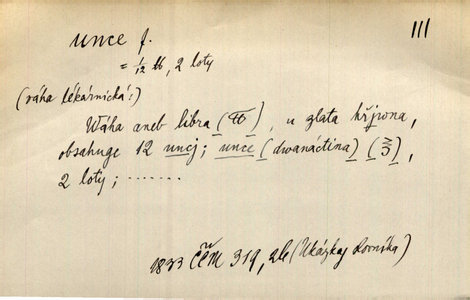 III
unce f.
= 1/12 ℔, 2 loty
(váha lékárnická:)
Wáha aneb libra (℔), u zlata hřjwna,
obsahuge 12 uncj; unce (dwanáctina) (℥),
2 loty; .......
1833 ČČM 319, 26 (Ukázky